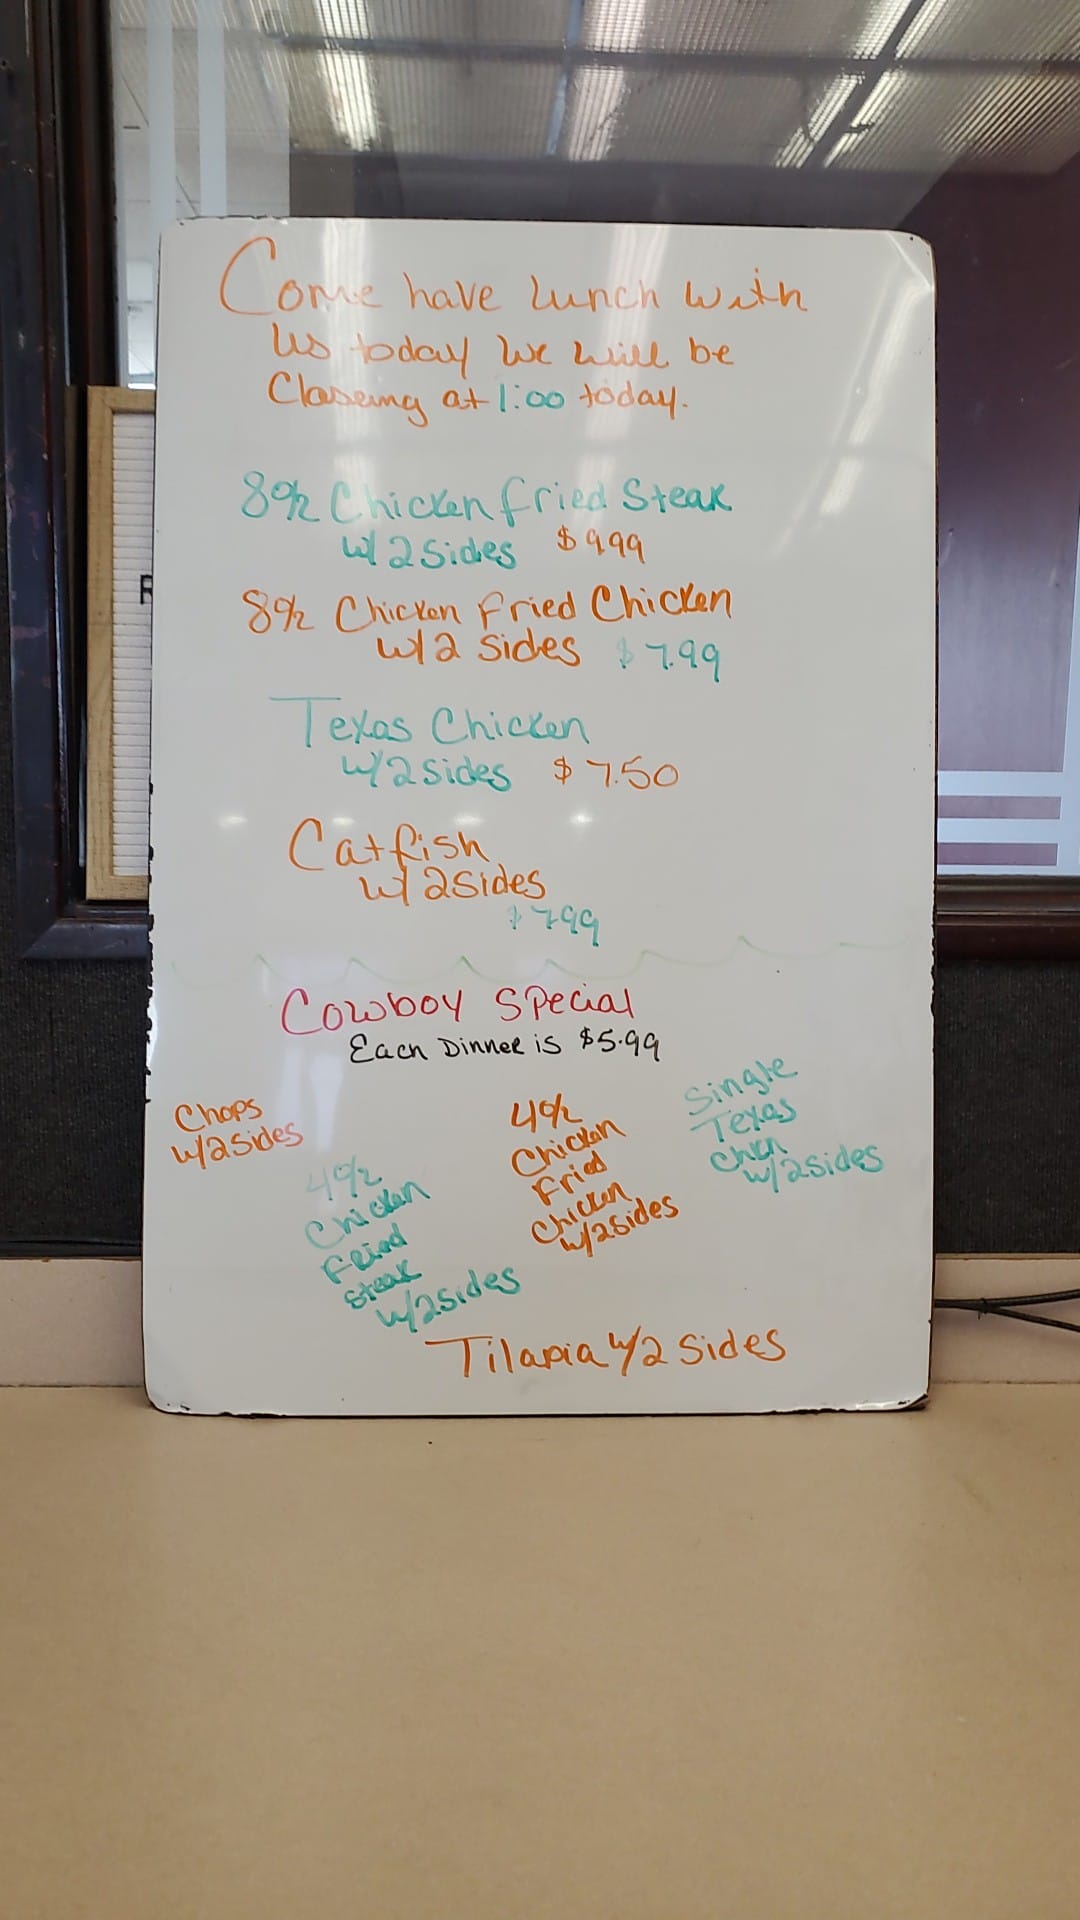 Come have lunch with
us today we will be
Closeing at 1:00 today.
8oz Chicken fried Steak
w/ 2 Sides $9.99
8oz Chicken Fried Chicken
w/2 sides $7.99
Texas Chicken
w/2 sides $7.50
Catfish
w/ 2 sides
$7.99
Cowboy Special
Each Dinner is $5.99
Chops
w/2 sides
4oz
Chicken
Fried
Steak
w/2 sides
4oz
Chicken
Fried
Chicken
w/2 sides
Single
Texas
Chicn
w/2 sides
Tilapia w/2 sides